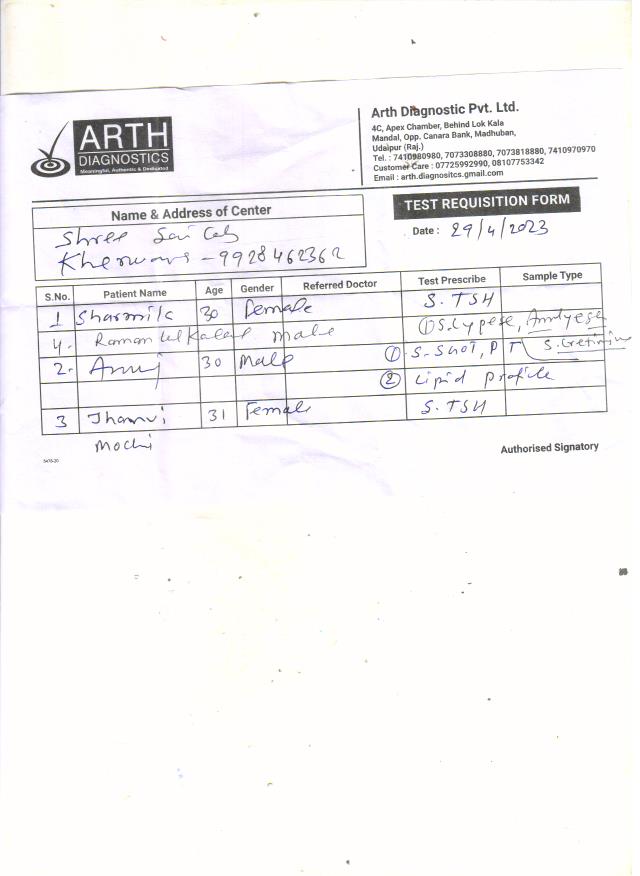 ARTH
DIAGNOSTICS
Meaningful, Authentic & Dedicated
Arth Diagnostic Pvt. Ltd.
4C, Apex Chamber, Behind Lok Kala
Mandal, Opp. Canara Bank, Madhuban,
Udaipur (Raj.)
Tel. : 7410980980, 7073308880, 7073818880, 7410970970
Customer Care : 07725992990, 08107753342
Email : arth.diagnositcs.gmail.com
TEST REQUISITION FORM
Date : 29/4/2023
Name & Address of Center
Shree Sai Lab
- 9928462362
S.No. Patient Name Age Gender Referred Doctor Test Prescribe Sample Type
1 Sharmila 30 Female S. TSH
4. Raman Male ①
2. Anuj 30 Male ① S-SGOT, PT S. Cretinine
② Lipid Profile
3 Jhanvi 31 Female S. TSH
Mochi
Authorised Signatory